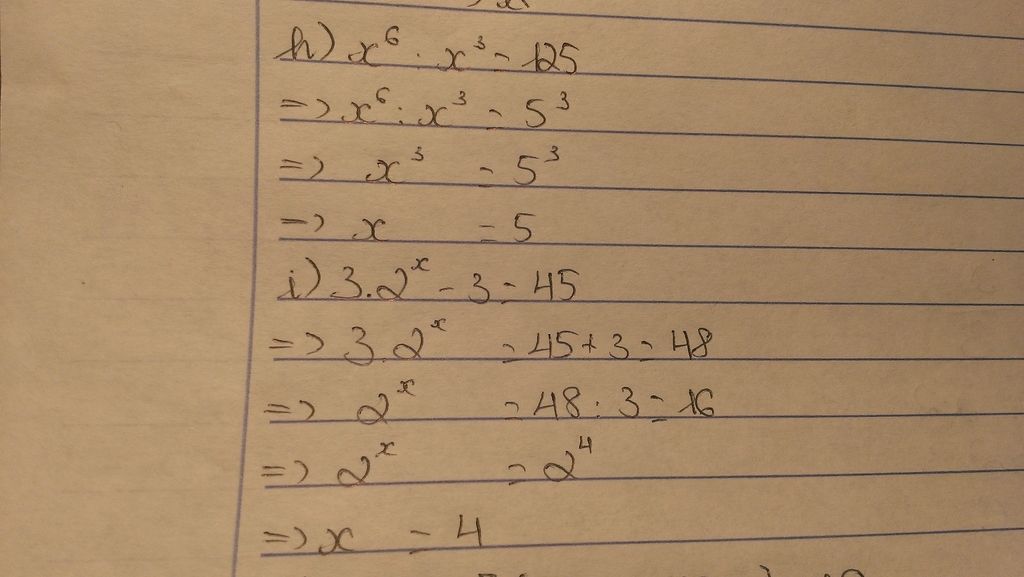 h) x⁶ : x³ = 125
=> x⁶ : x³ = 5³
=> x³ = 5³
=> x = 5
i) 3.2ˣ - 3 = 45
=> 3.2ˣ = 45 + 3 = 48
=> 2ˣ = 48 : 3 = 16
=> 2ˣ = 2⁴
=> x = 4